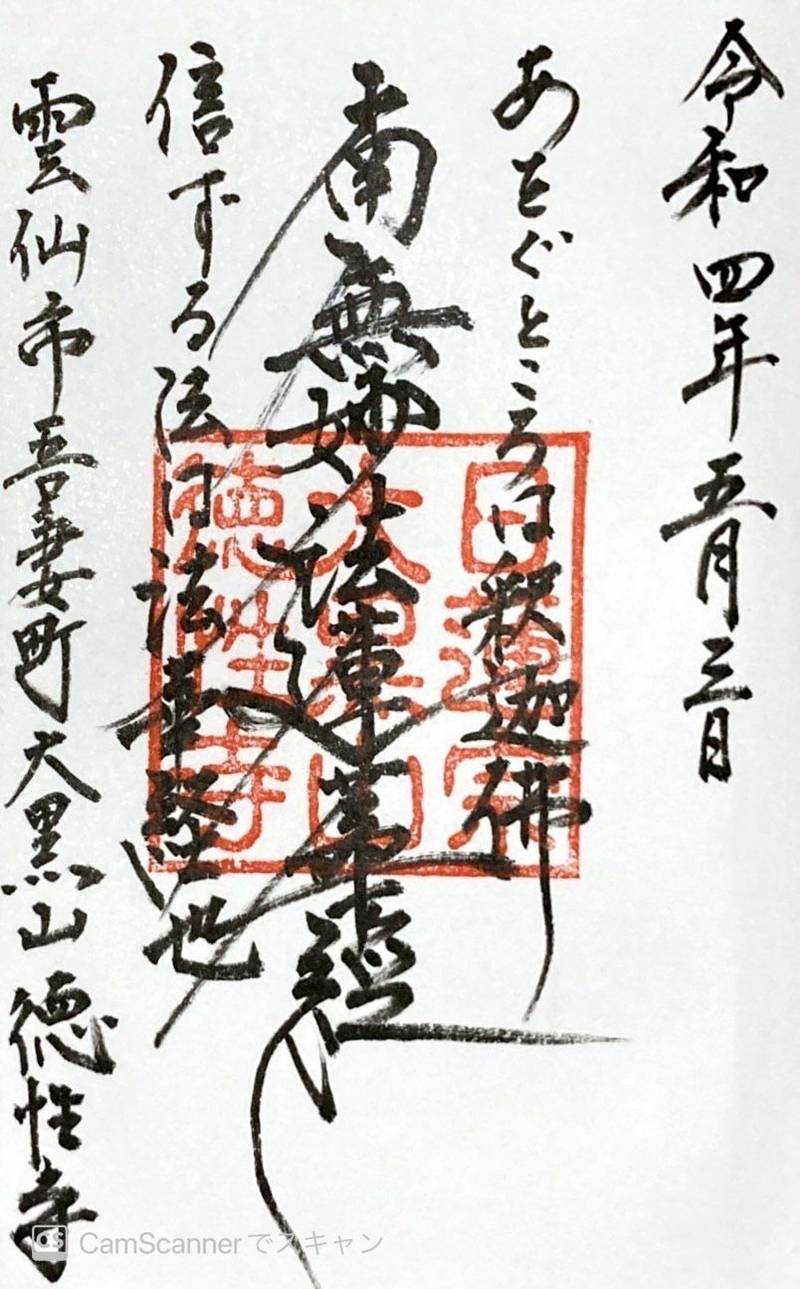 令和四年五月三日
あをぐところは釈迦佛
南無妙法蓮華經
信ずる法は法華経也
雲仙市吾妻町大黒山徳性寺
日蓮宗
大黒山
徳性寺
CS CamScannerでスキャン